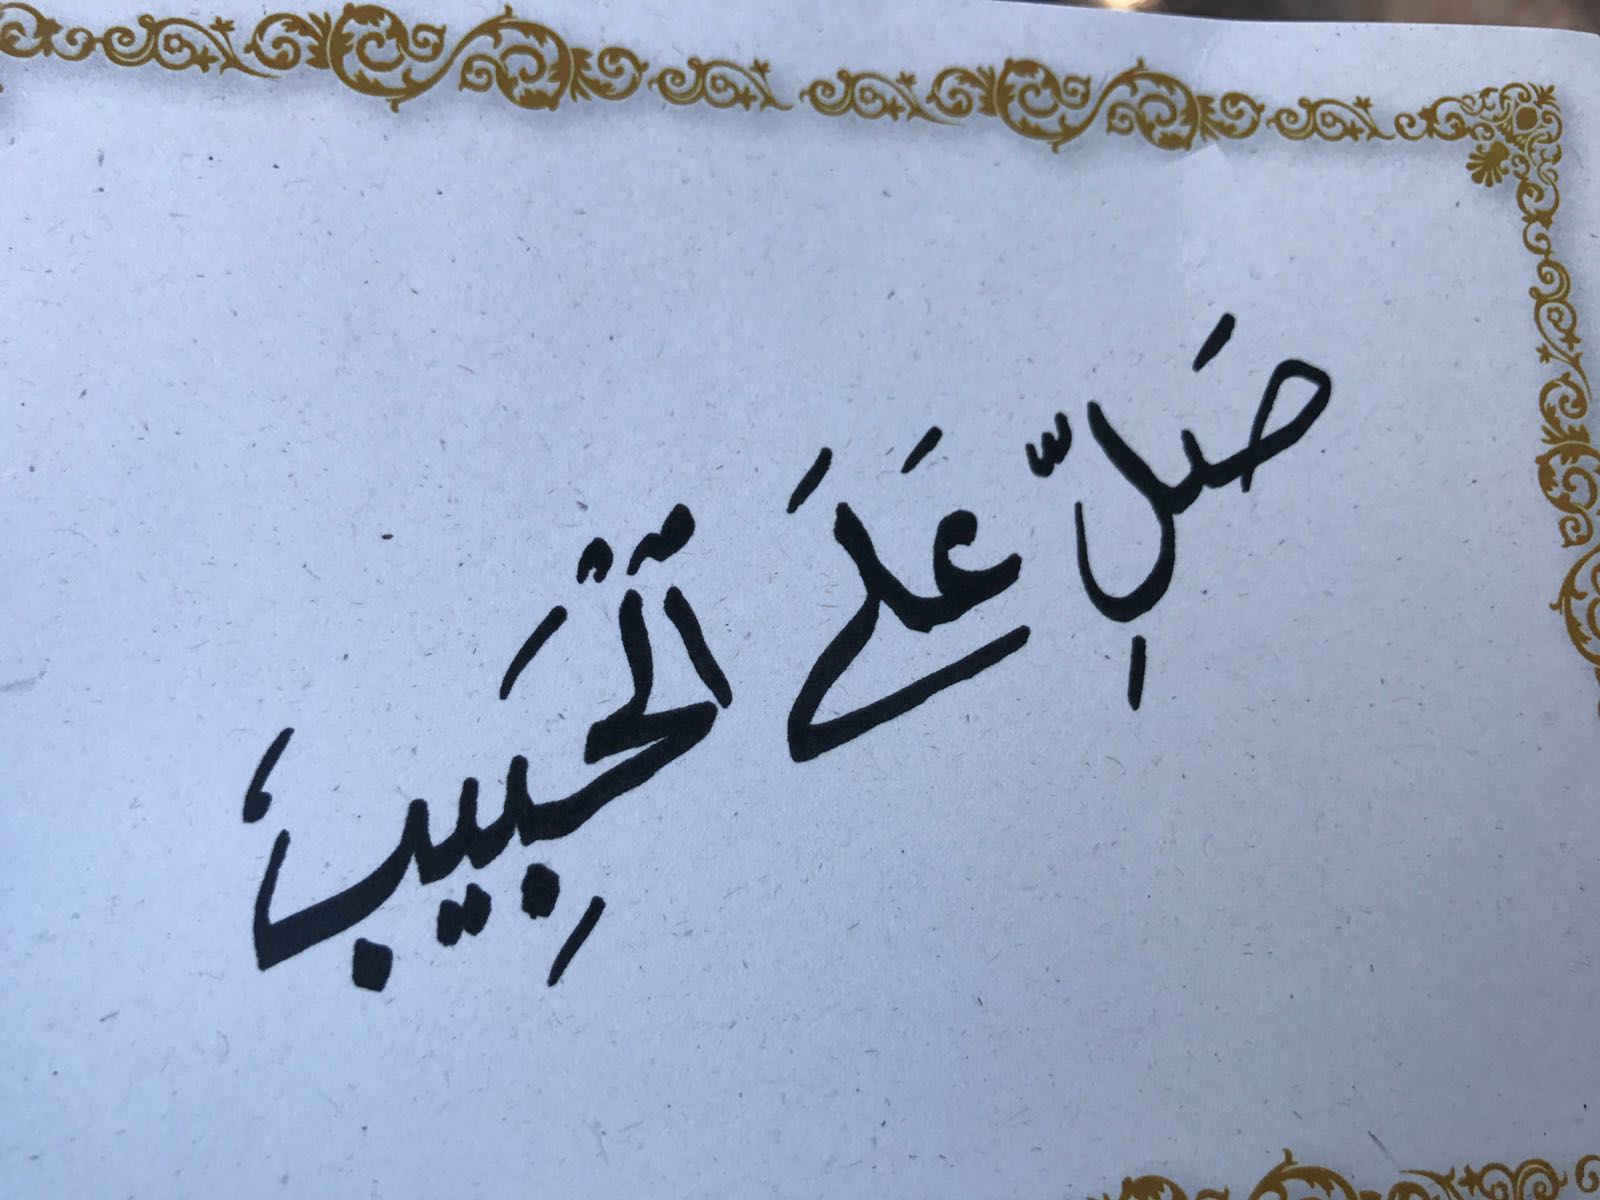 صَلِّ عَلَى ٱلْحَبِيبْ